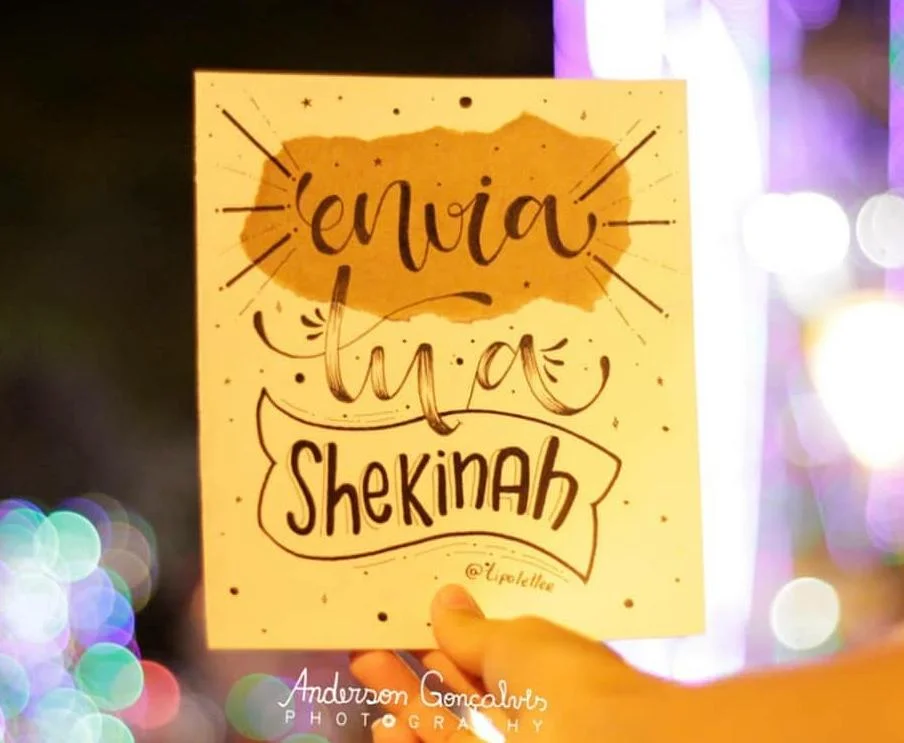 envia
tua
Shekinah
@tipoletter
Anderson Gonçalves
PHOTOGRAPHY